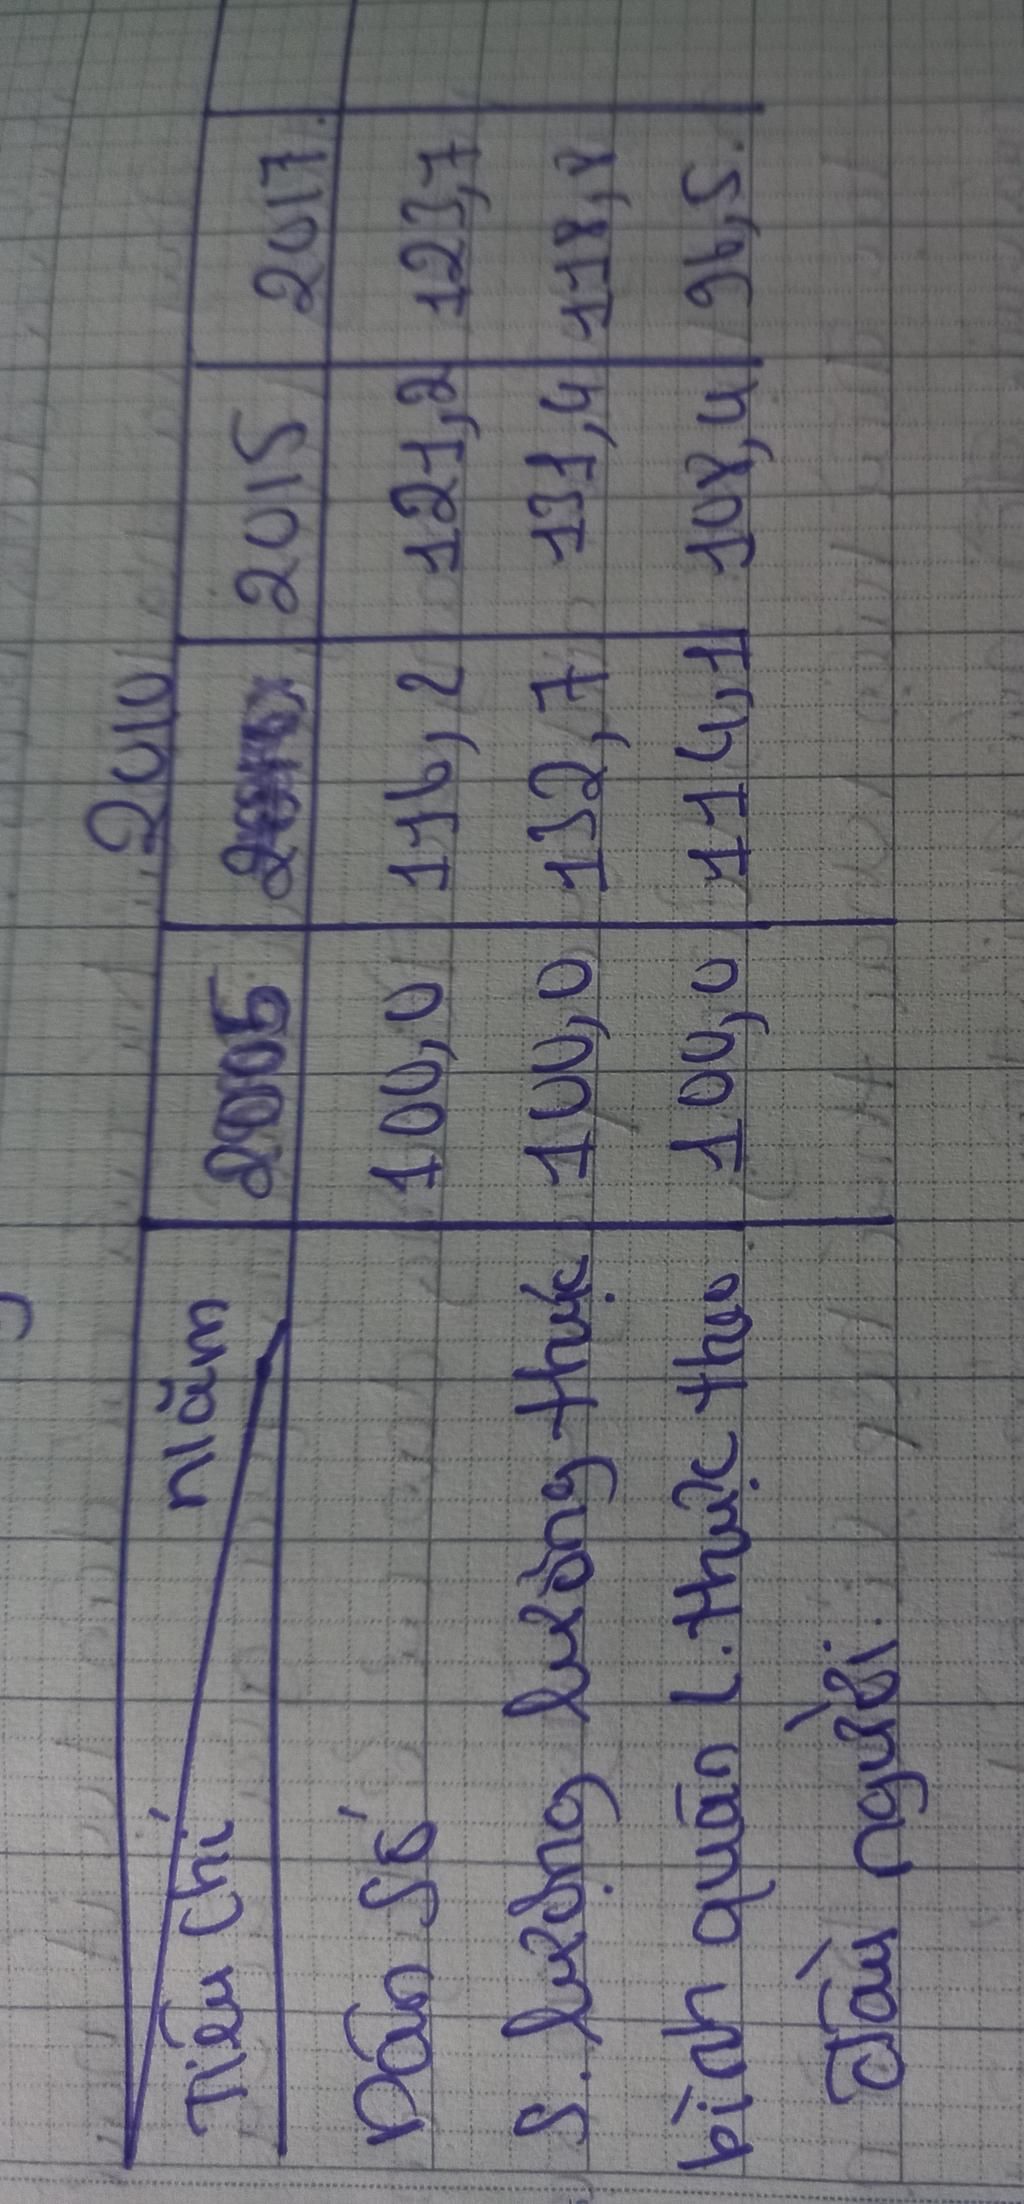 2010
Tiêu chí năm 2005 2015 2017
Dân số 100,0 116,2 121,2 123,7
S. lượng lương thực 100,0 132,7 131,4 118,8
bình quân l. thực theo 100,0 114,1 108,4 96,5.
đầu người.